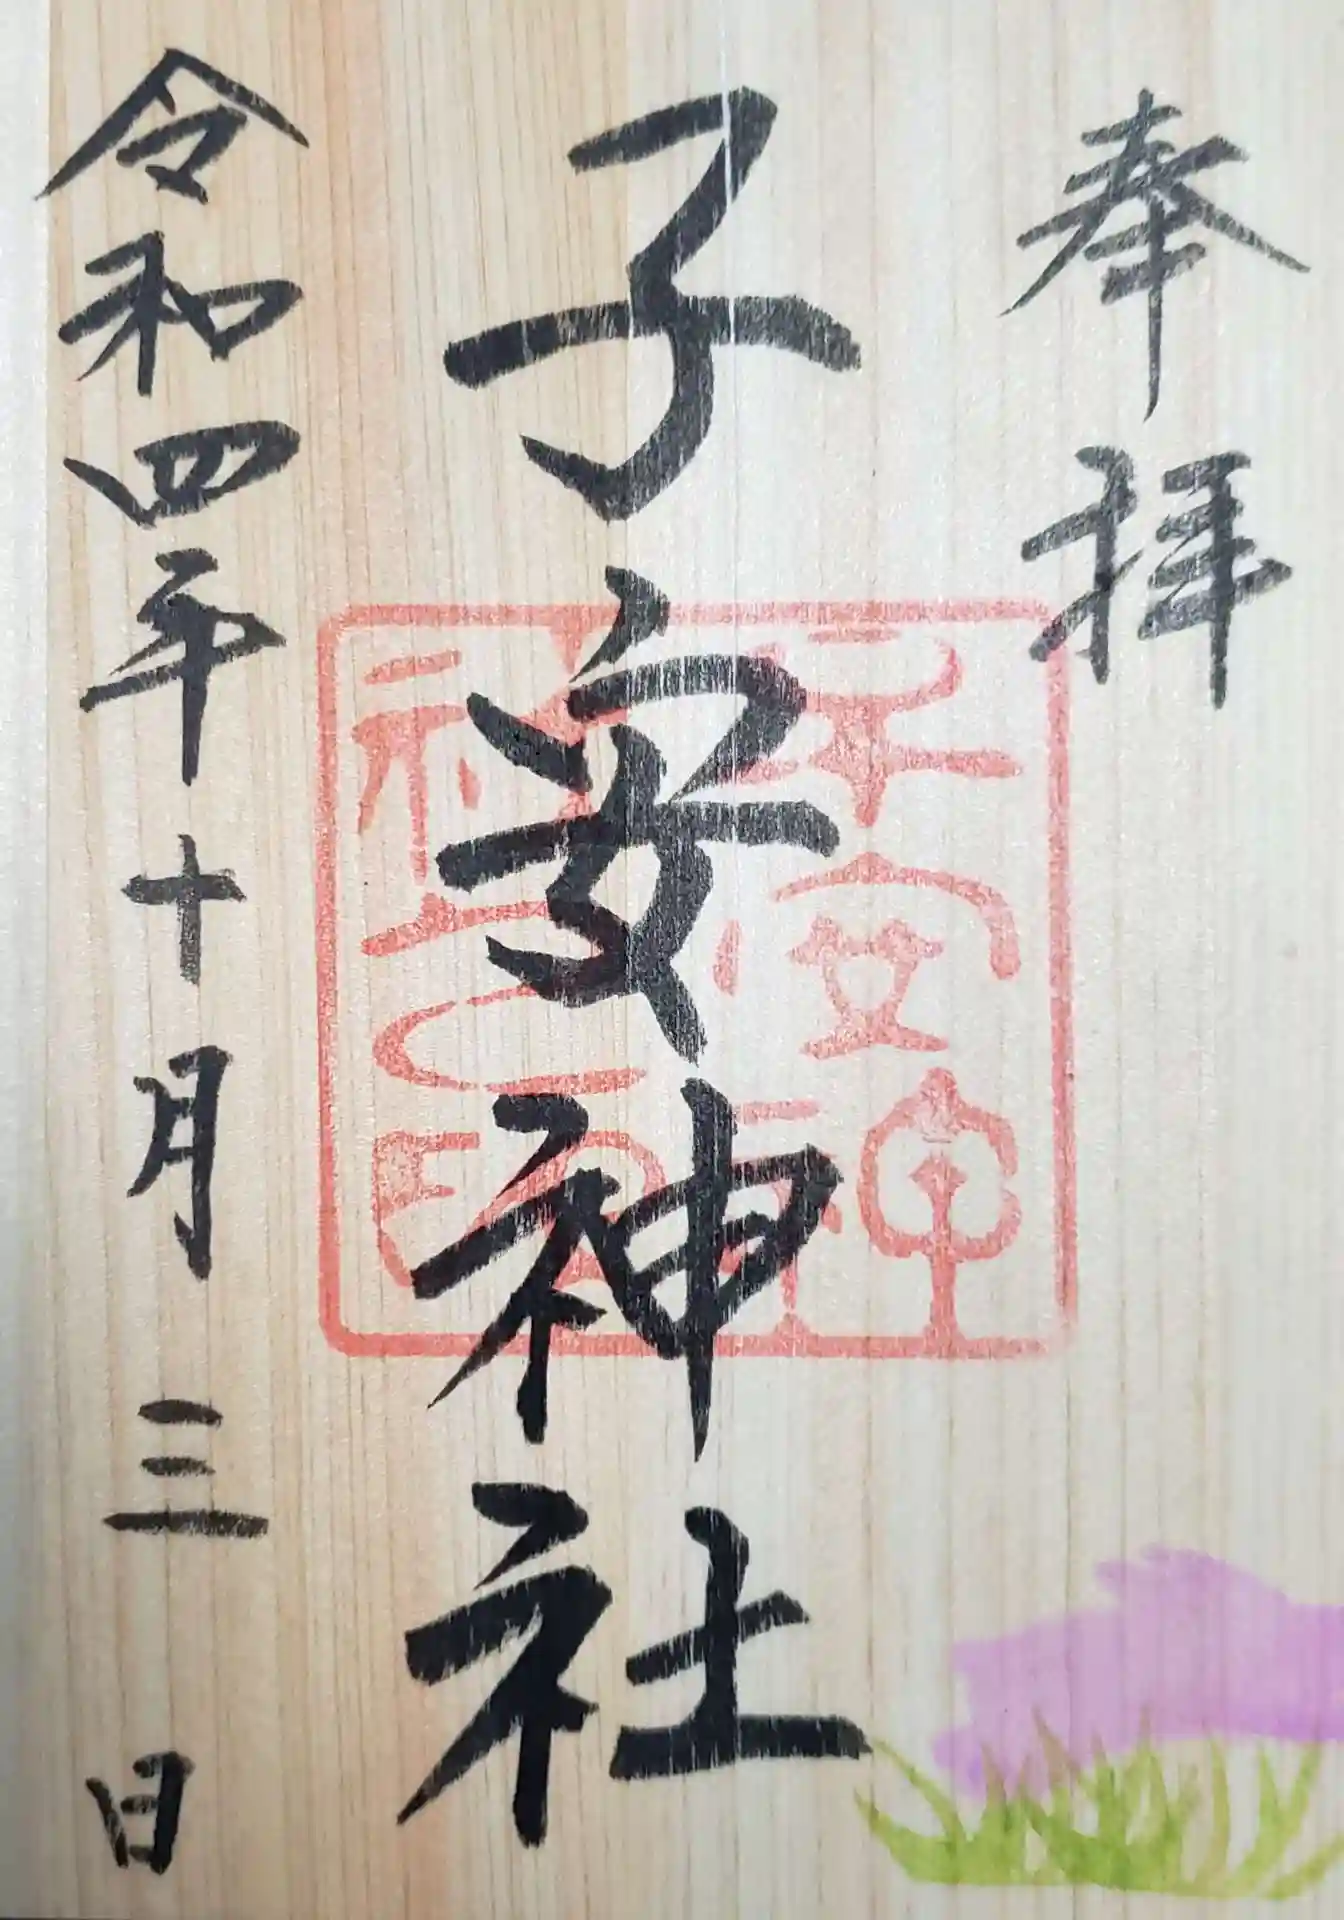 奉拝
子安神社
子安神社之印
令和四年十月三日